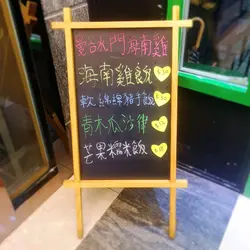 海南雞
海南雞飯
軟綿綿豬手飯
青木瓜沙律
芒果糯米飯